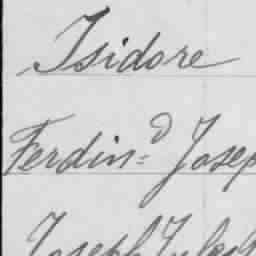 Isidore
Ferdin=d Josep
Joseph Jules